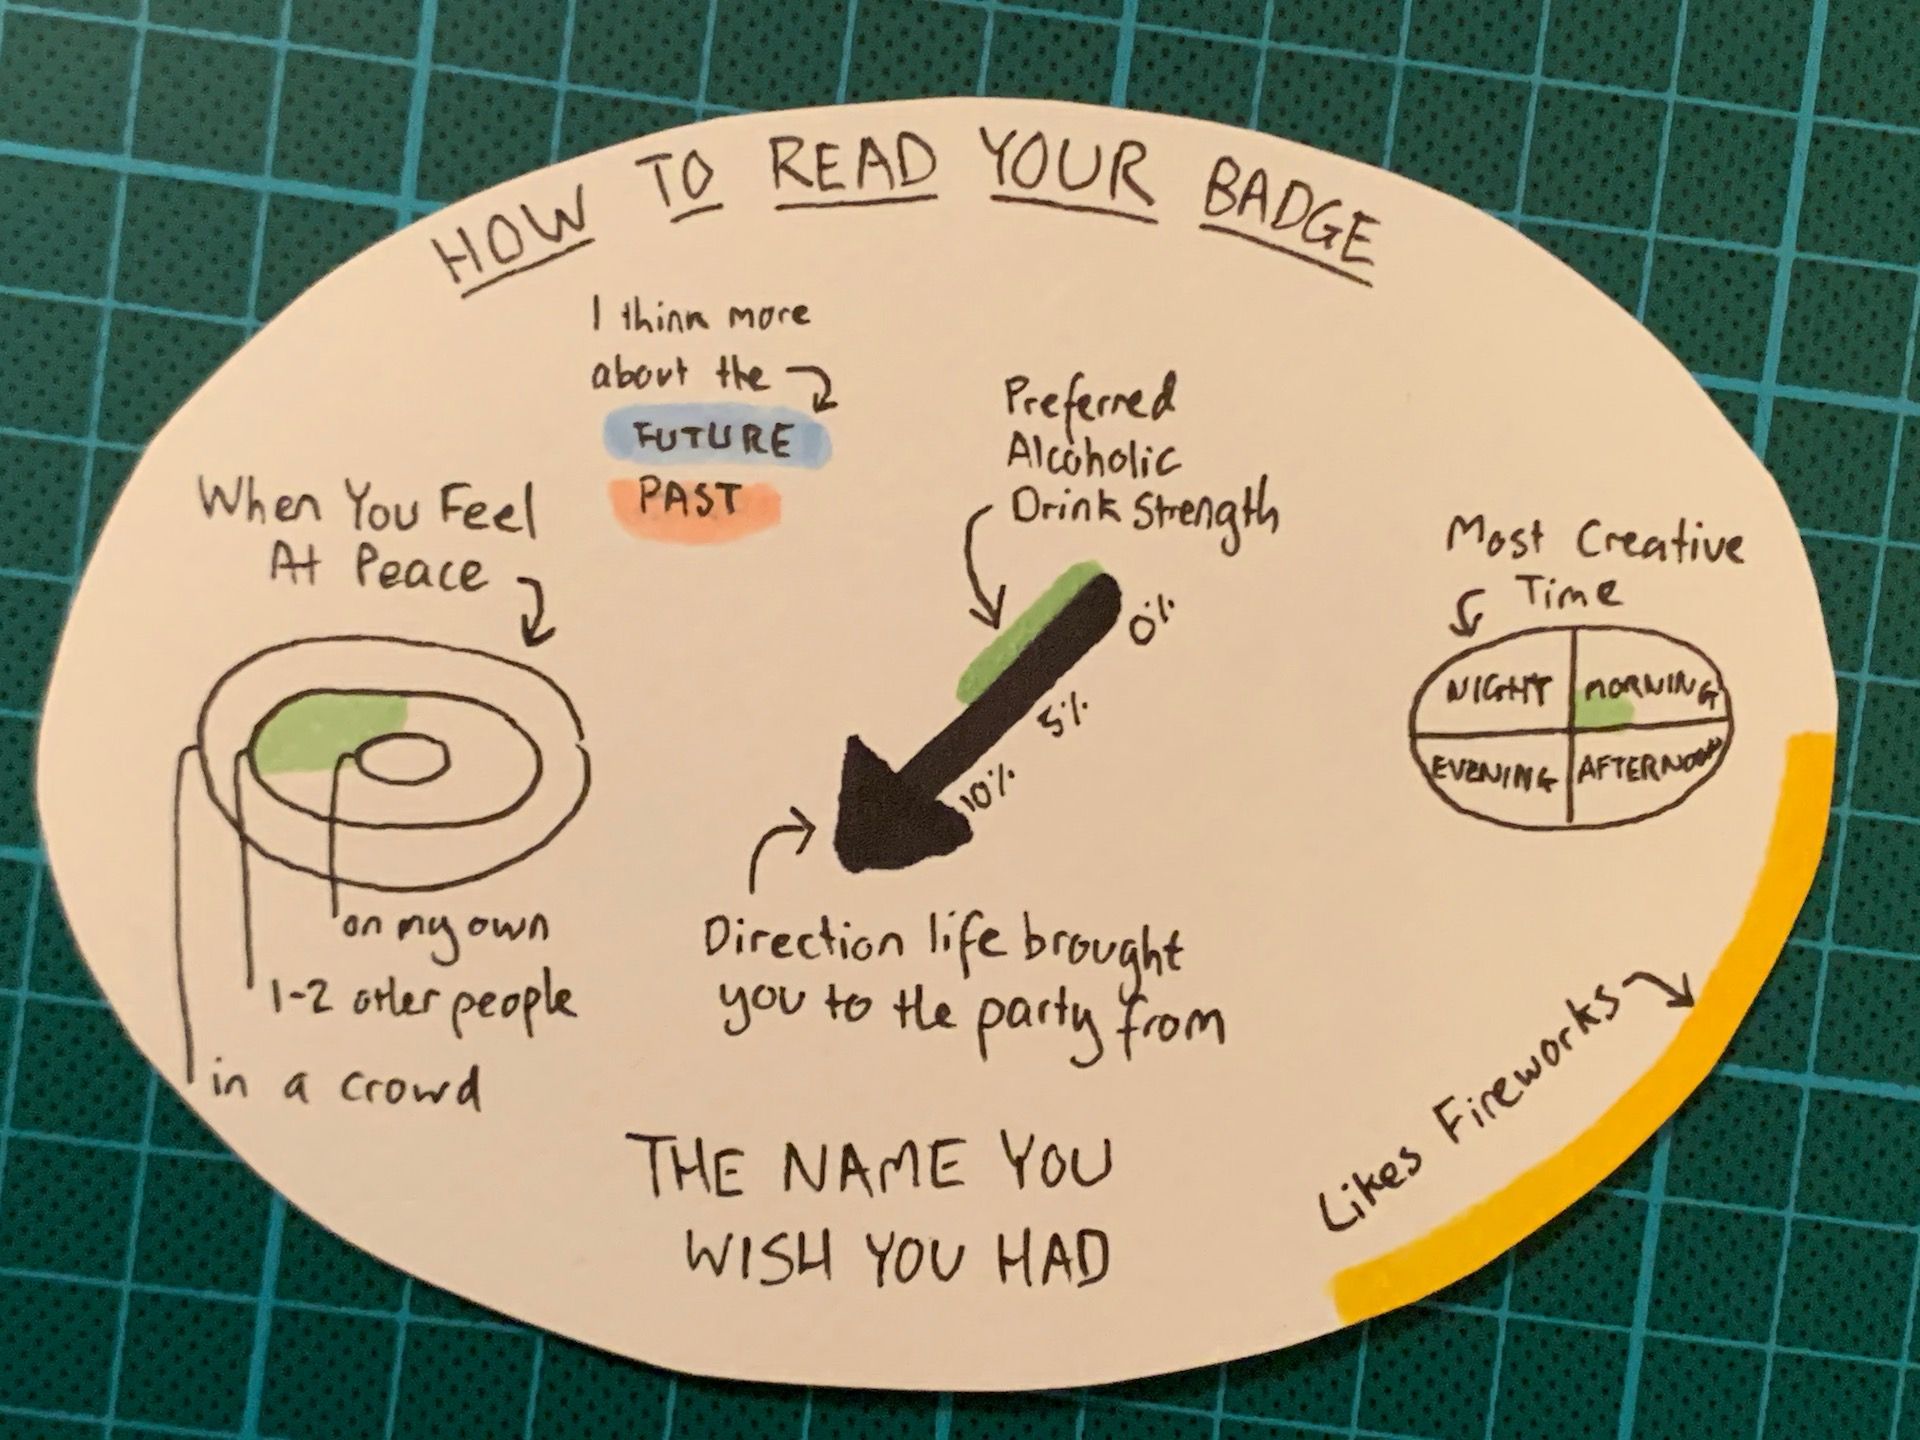 HOW TO READ YOUR BADGE
I think more
about the
FUTURE
PAST
Preferred
Alcoholic
Drink Strength
0%
5%
10%
When You Feel
At Peace
on my own
1-2 other people
in a crowd
Most Creative
Time
NIGHT MORNING
EVENING AFTERNOON
Direction life brought
you to the party from
Likes Fireworks
THE NAME YOU
WISH YOU HAD